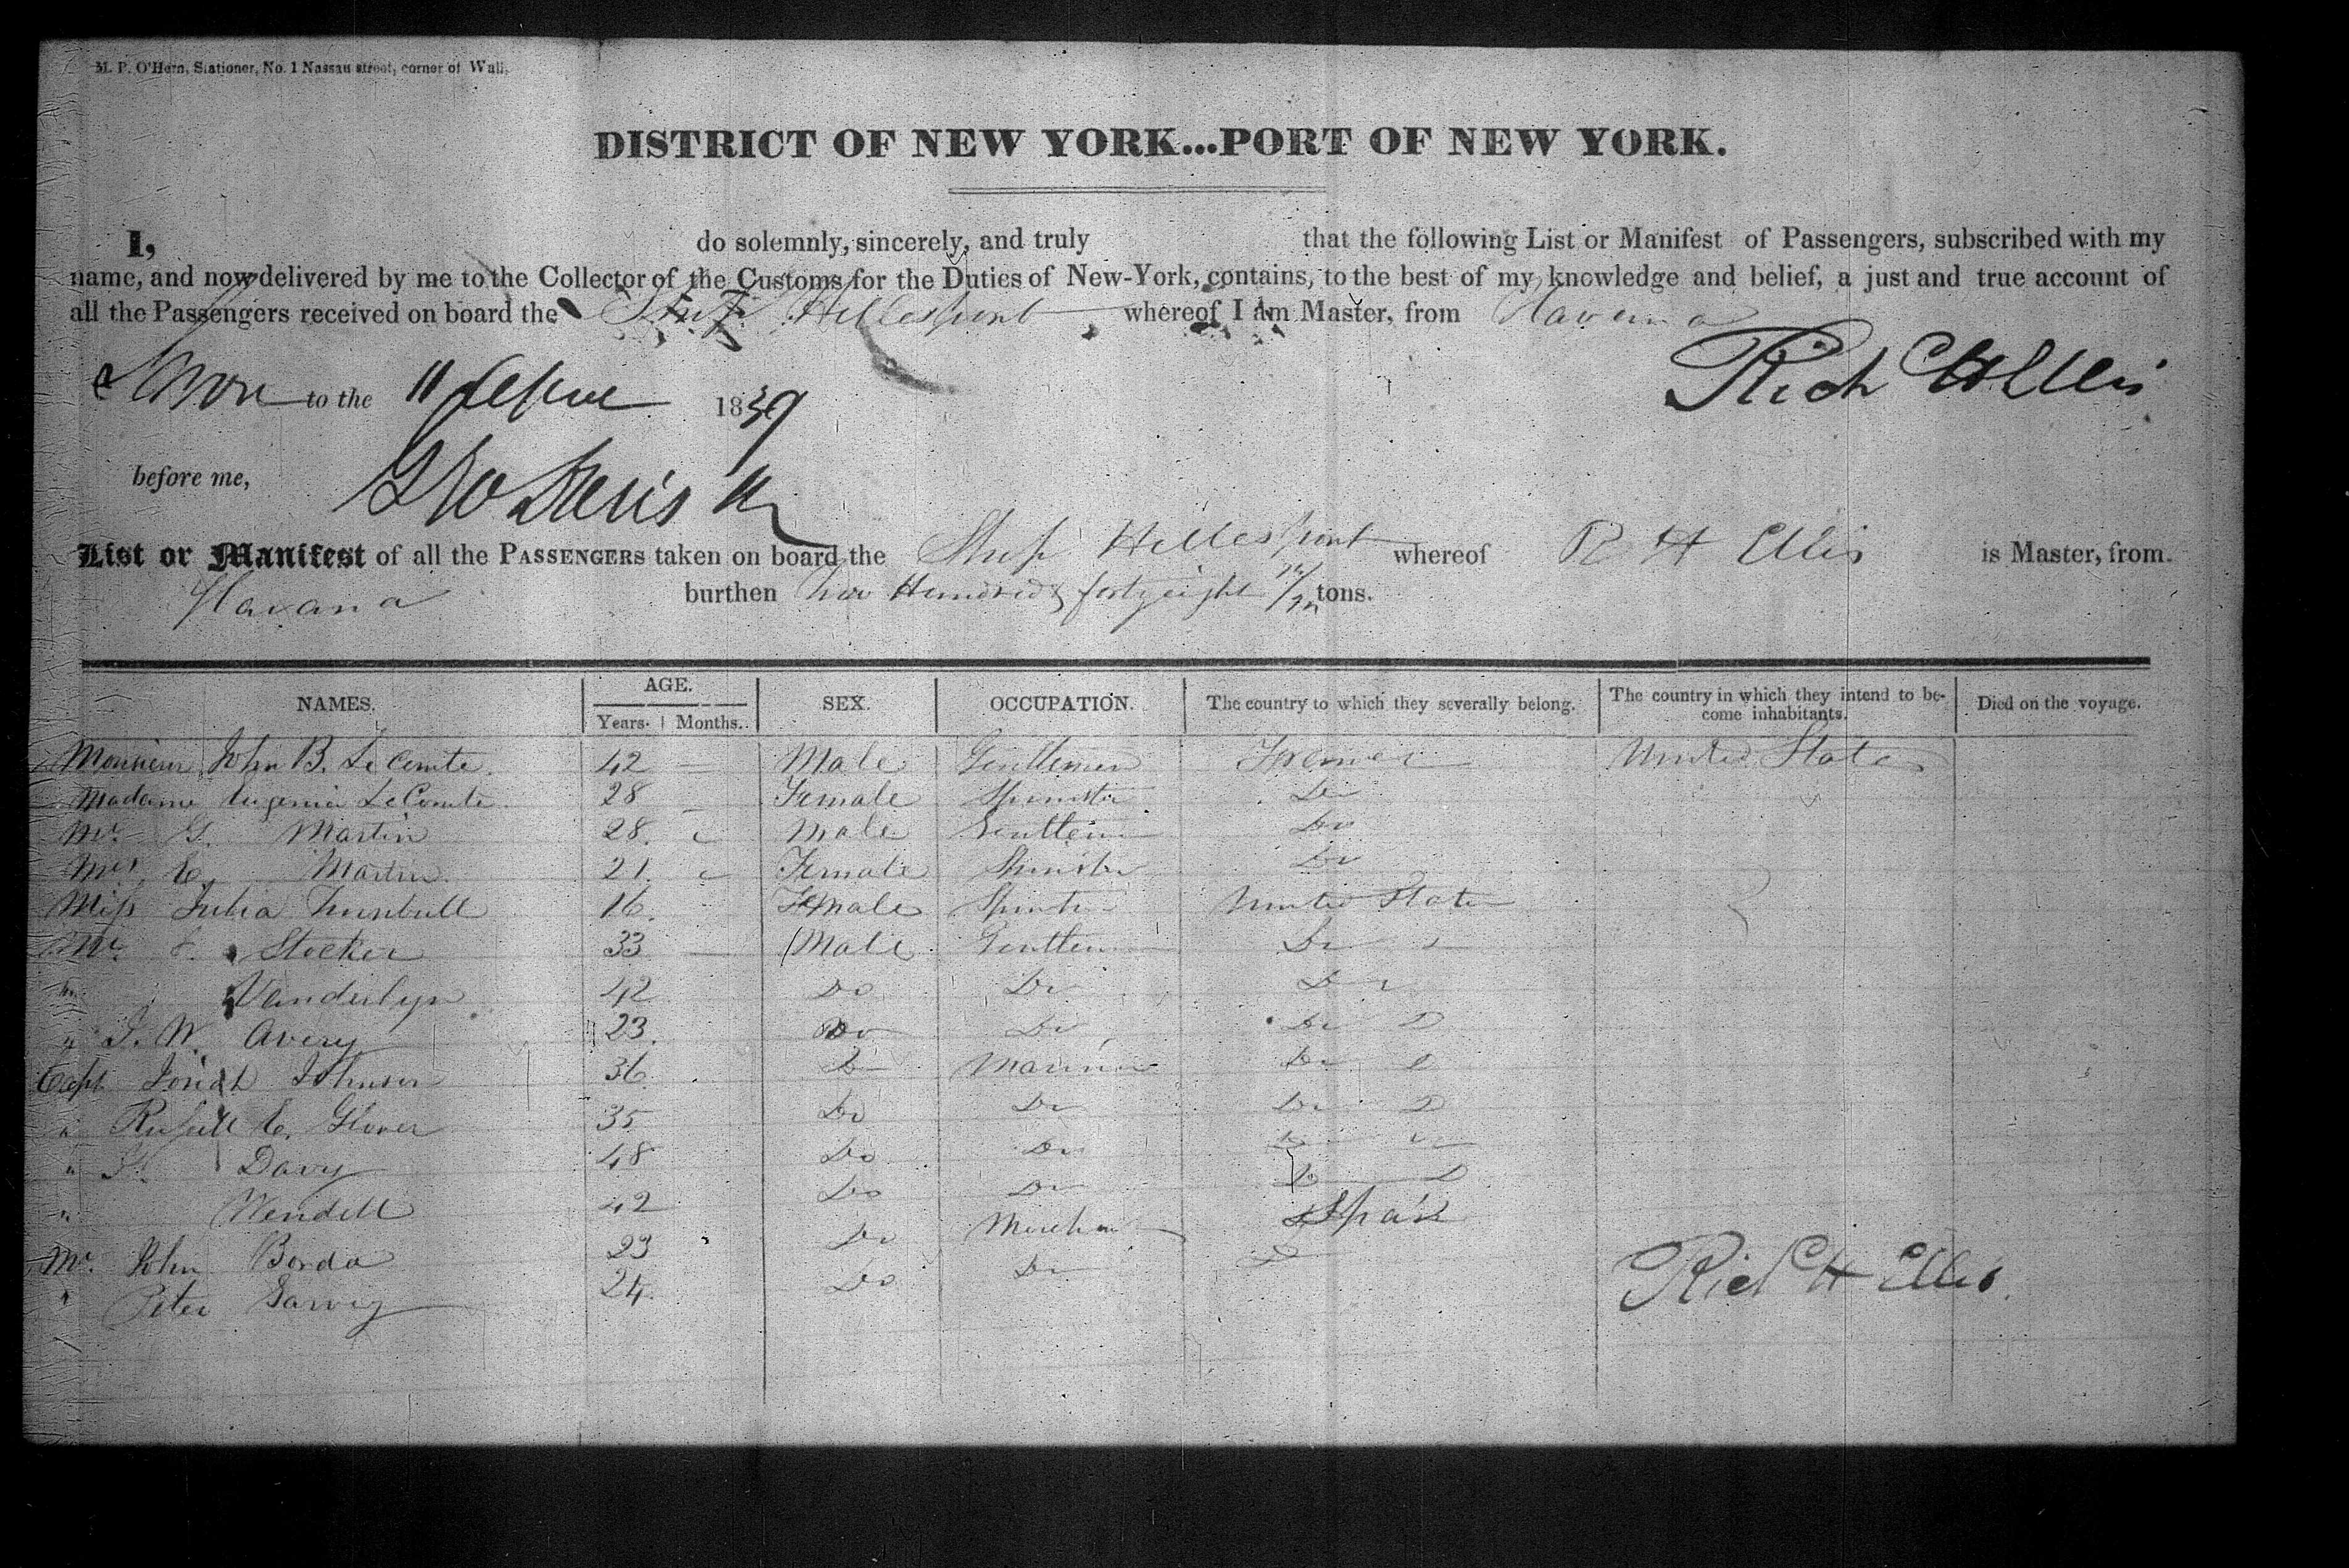 M. P. O'Hern, Stationer, No. 1 Nassau street, corner of Wall,
DISTRICT OF NEW YORK...PORT OF NEW YORK.
I, do solemnly, sincerely, and truly that the following List or Manifest of Passengers, subscribed with my
name, and now delivered by me to the Collector of the Customs for the Duties of New-York, contains, to the best of my knowledge and belief, a just and true account of
all the Passengers received on board the Ship Hellespont whereof I am Master, from Havana
Swon to the 11 1839 Rich H Ellis
before me,
List or Manifest of all the PASSENGERS taken on board the Ship Hellespont whereof R H Ellis is Master, from
Havana burthen Hundred & forty eight tons.
NAMES. AGE. SEX. OCCUPATION. The country to which they severally belong. The country in which they intend to be-
come inhabitants. Died on the voyage.
Years. Months.
Monsieur John B. LeComte 42 — Male Gentleman France United States
Madame Eugenia LeComte 28 Female Spinster Do
Mr. G. Martin 28 Male Gentleman Do
Mrs. E. Martin 21 Female Spinster Do
Miss Julia Turnbull 16 Female Spinster United States
Mr. Stocker 33 — Male Gentleman Do
" Vanderlyn 42 Do Do Do
" J. W. Avery 23 Do Do Do D
Capt Josiah Johnson 36 Do Mariner Do
" Russell E. Glover 35 Do Do Do D
" Davy 48 Do Do Do
" Wendell 42 Do Do Do D
Mr. John Borda 23 Do Merchant Spain
" Peter 24 Do Do D
Rich H Ellis